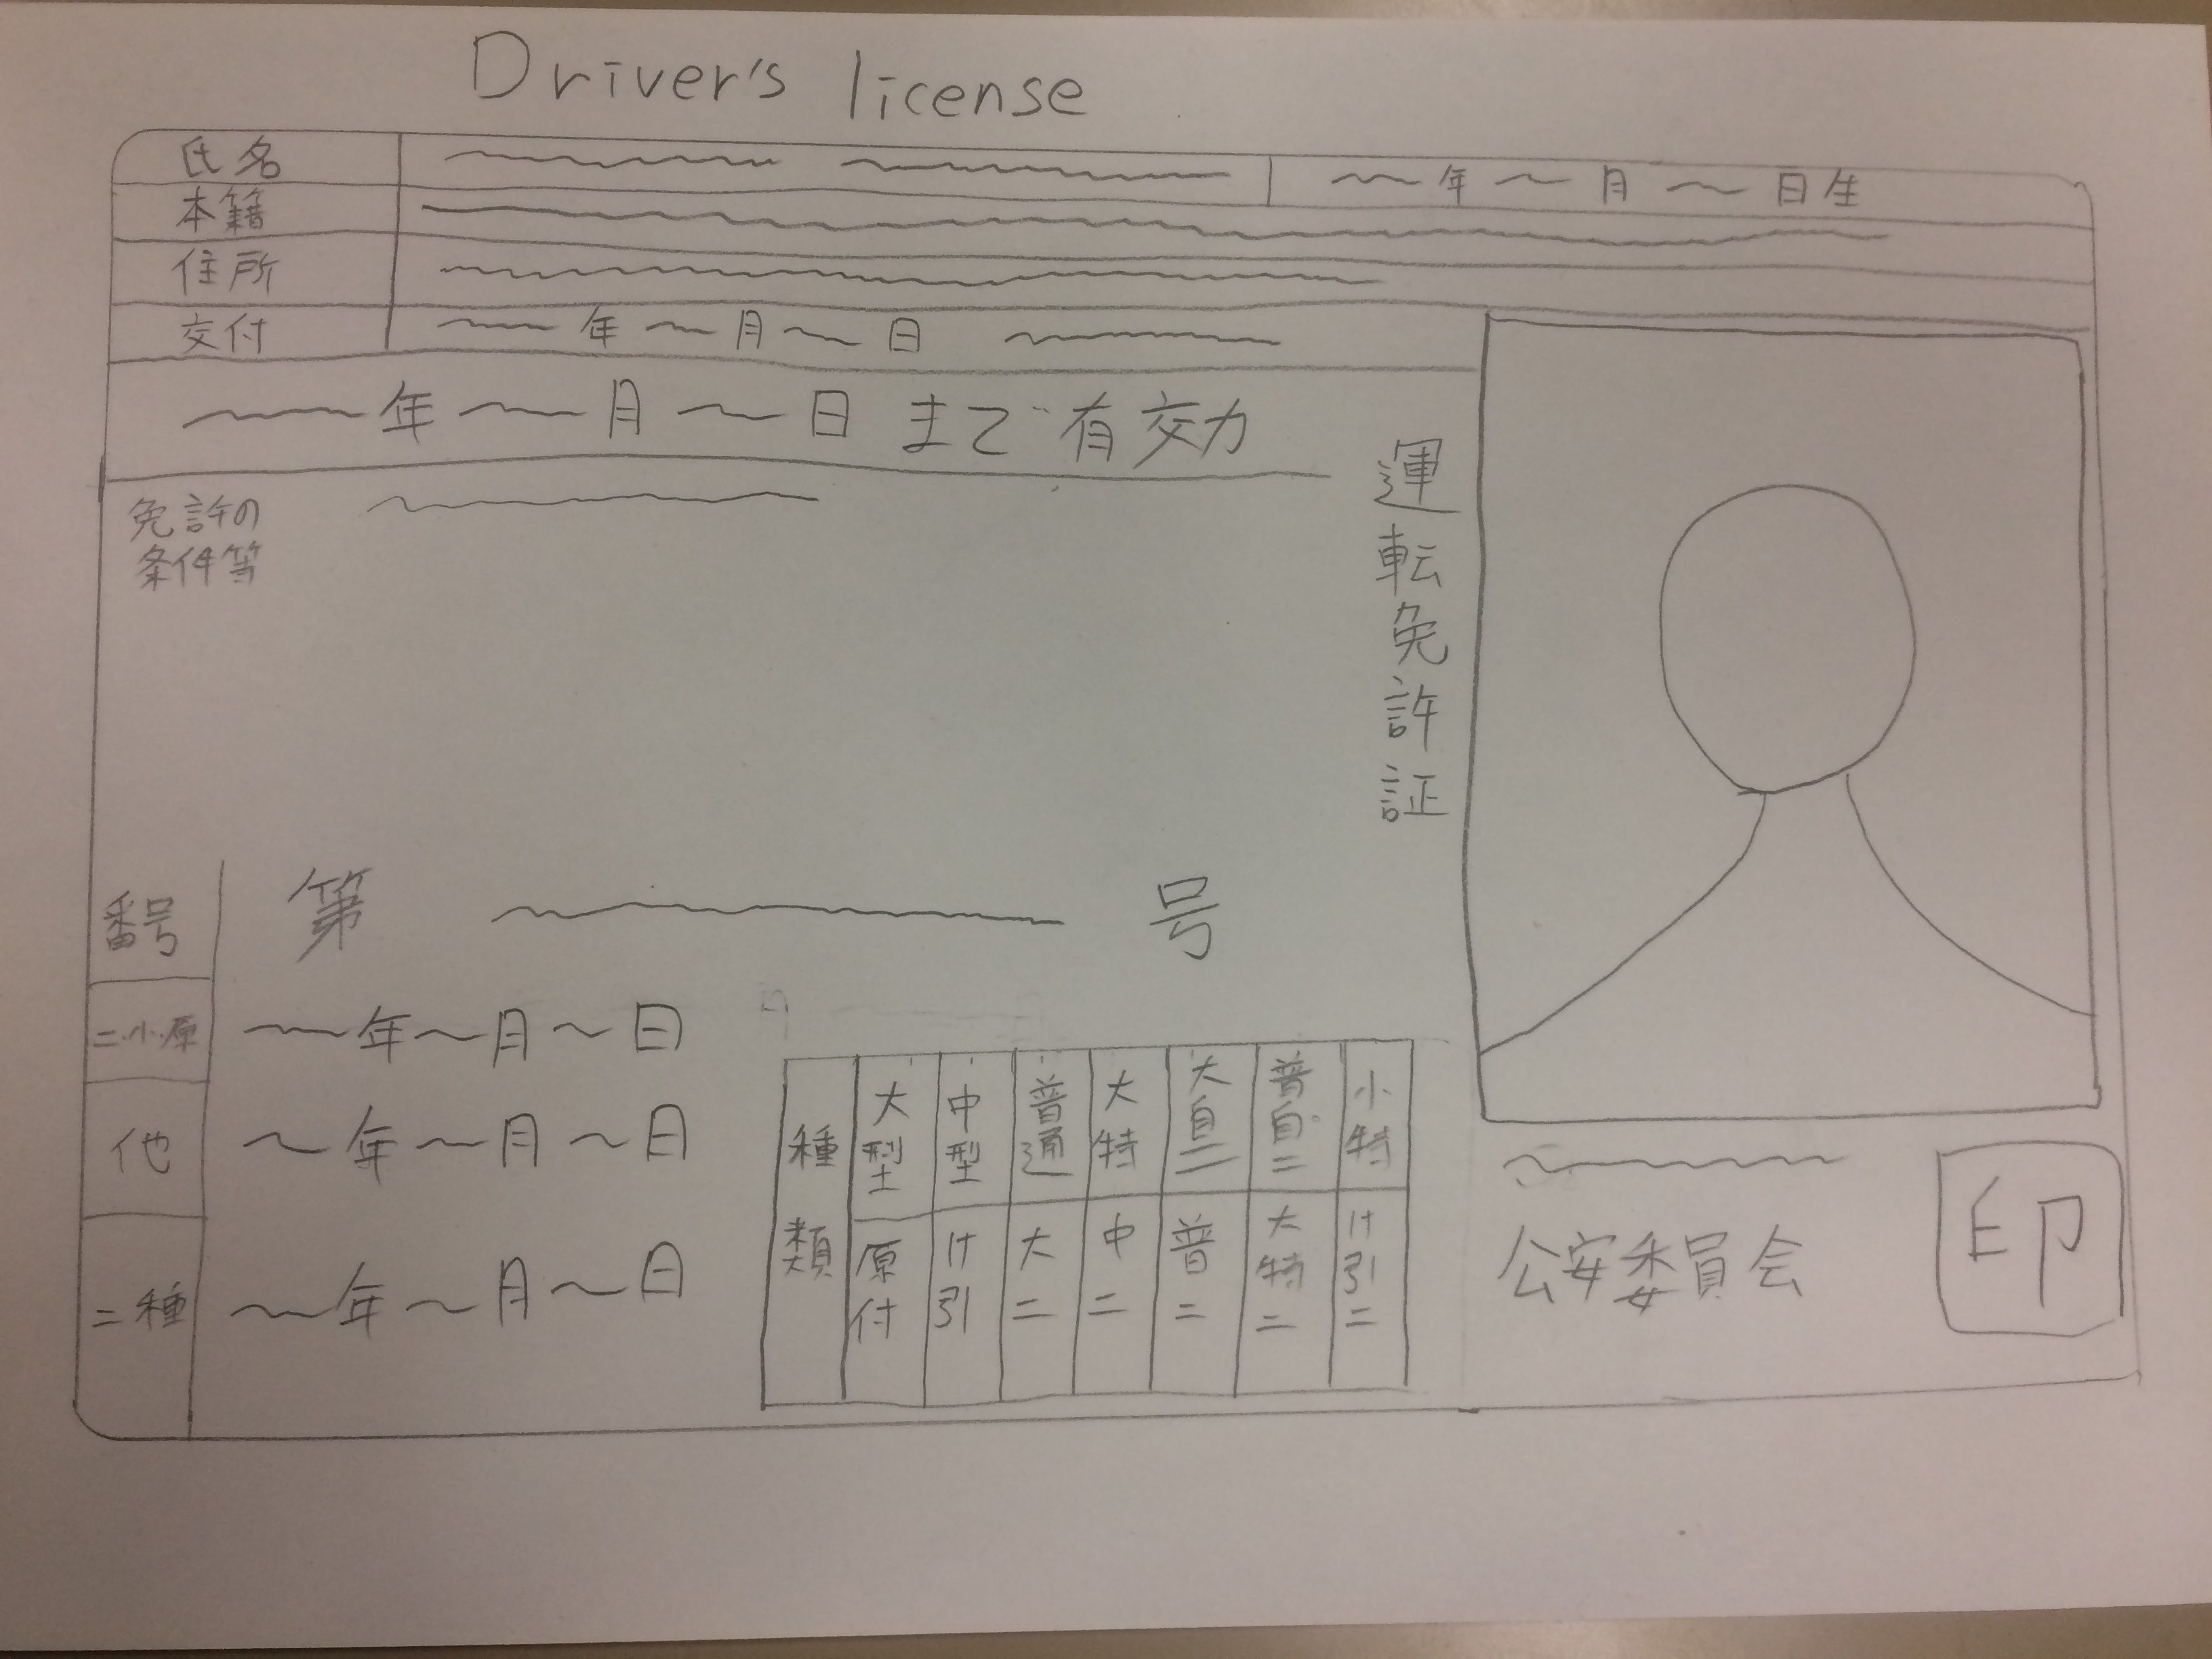 Driver's license
氏名 年 月 日生
本籍
住所
交付 年 月 日
年 月 日 まで有効
免許の
条件等
運転免許証
番号 第 号
二・小・原 年 月 日
他 年 月 日
二種 年 月 日
種類
大型 中型 普通 大特 大自二 普自二 小特
原付 け引 大二 中二 普二 大特二 け引二
公安委員会
印